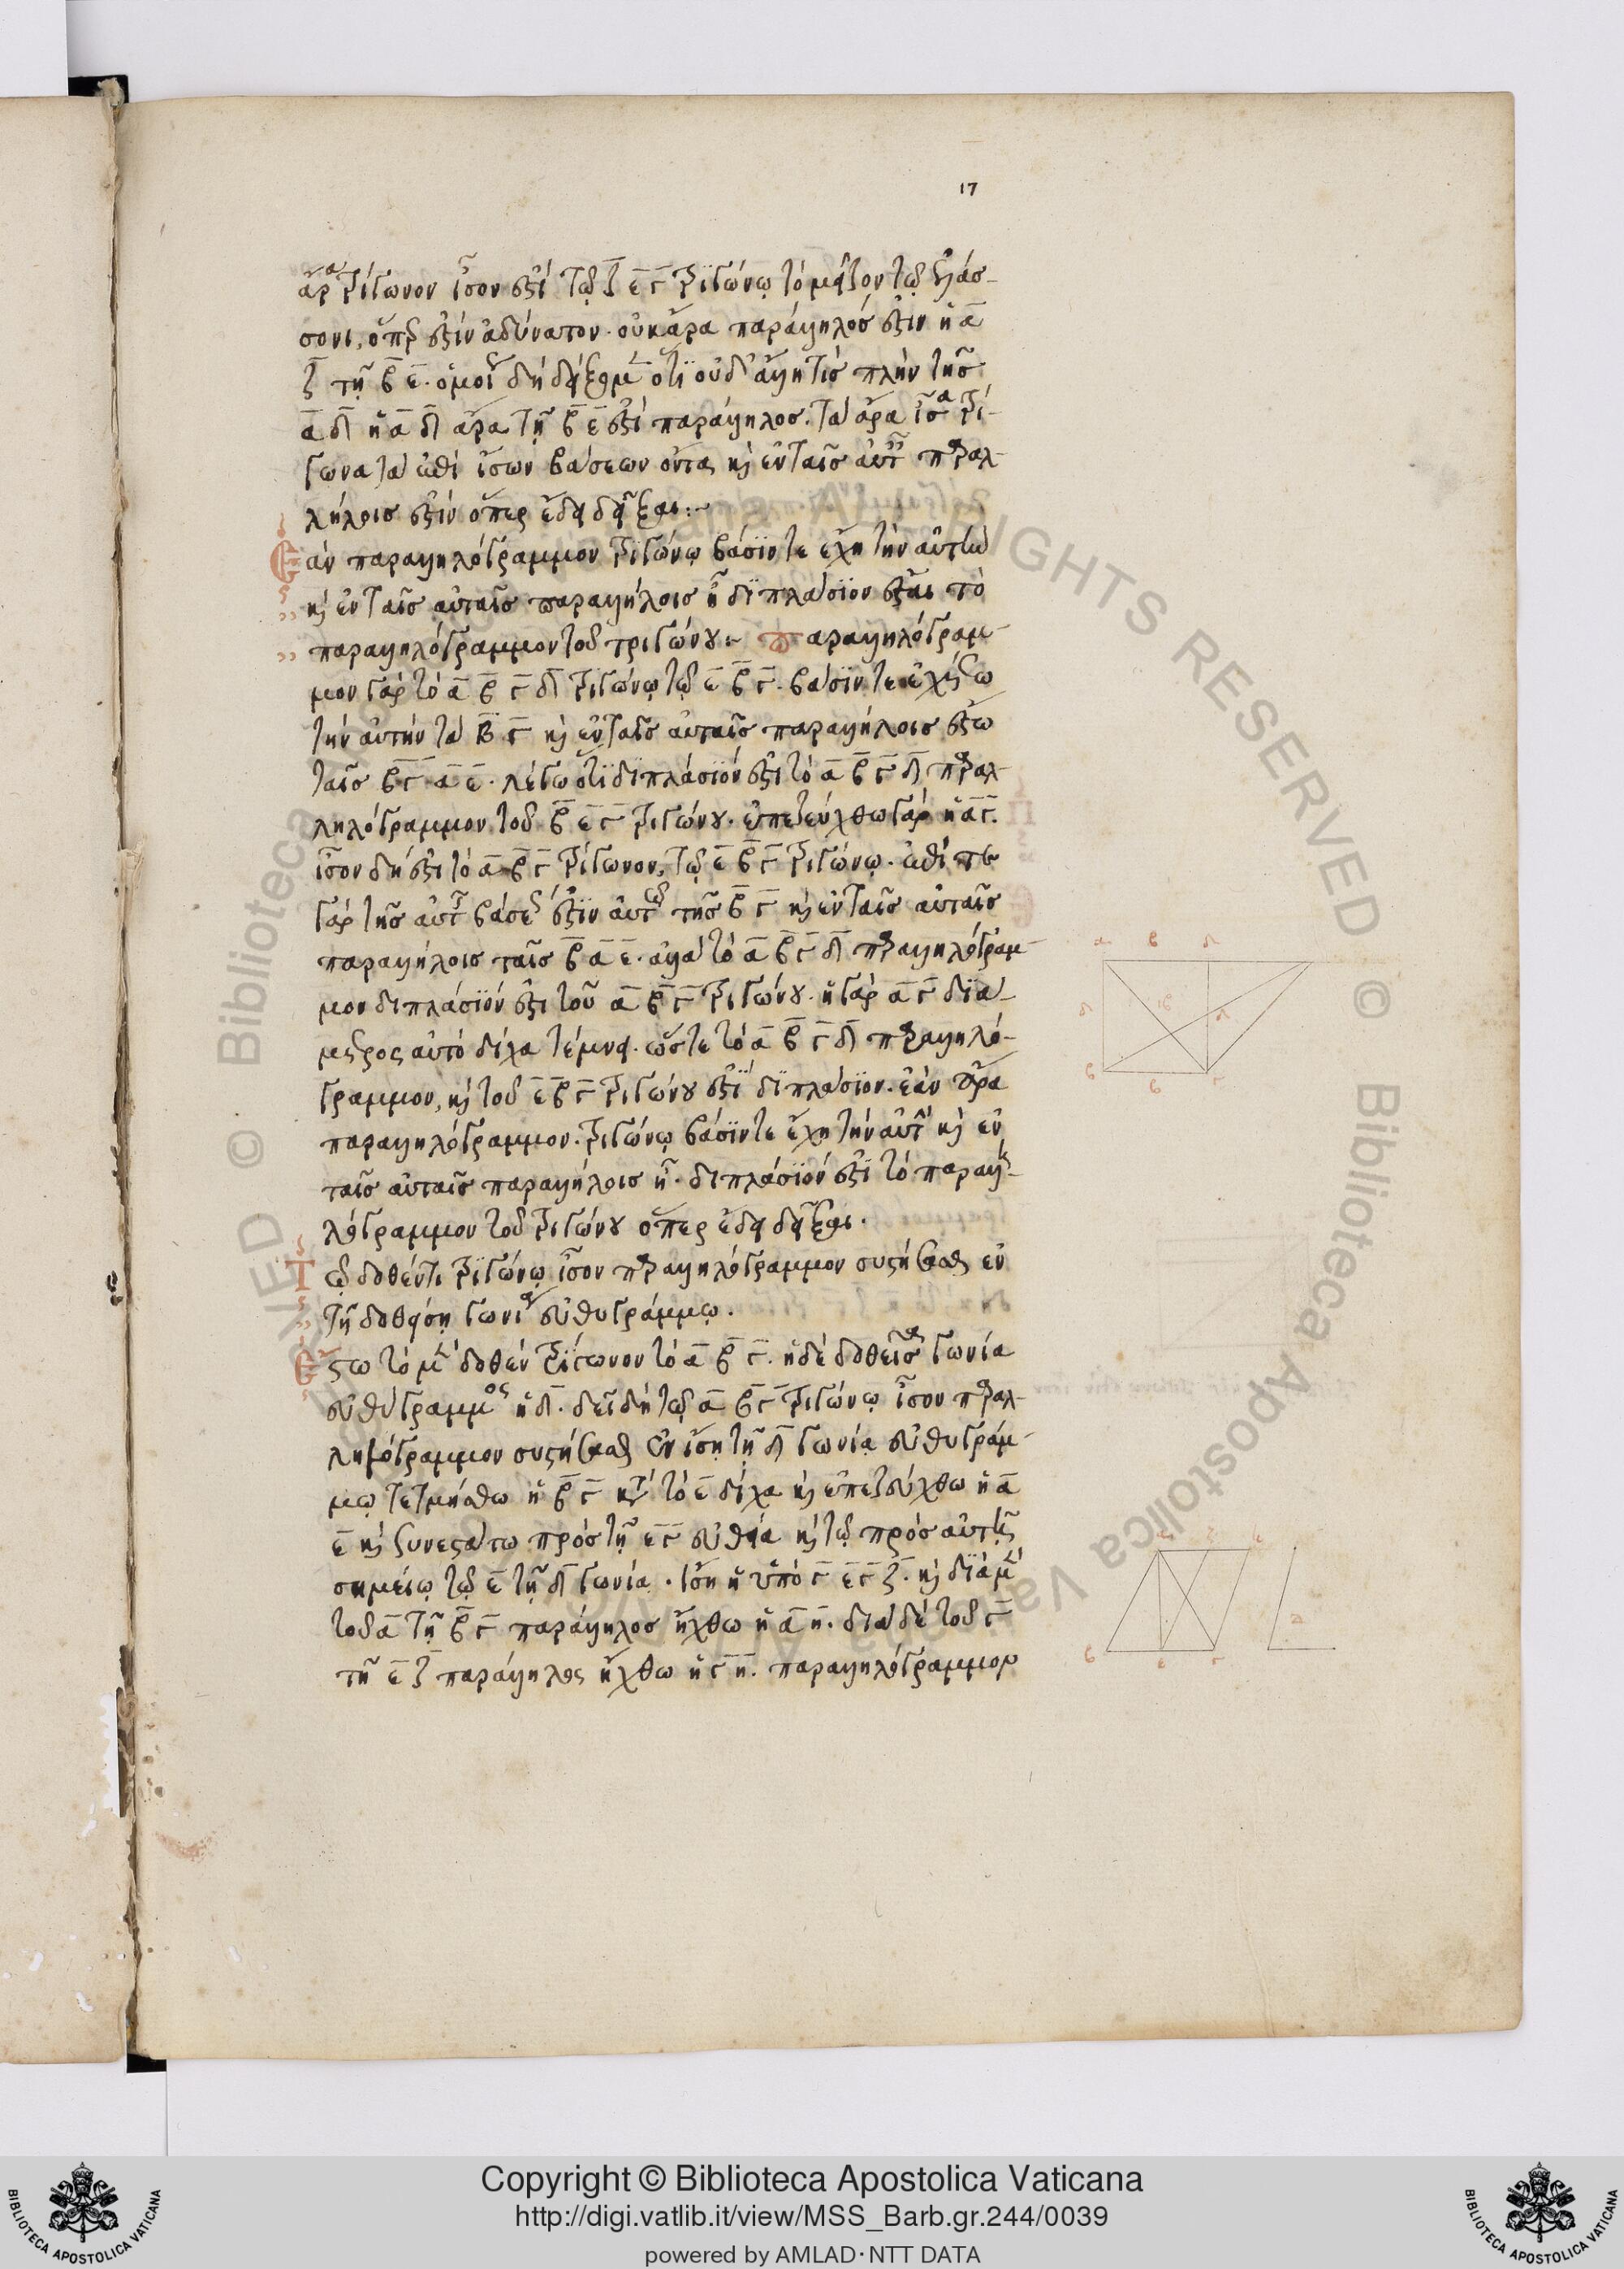 17
ἄρα τρίγωνον ἴσον ἐστὶ τῷ ζ ε γ τριγώνῳ τὸ μεῖζον τῷ ἐλάσ-
σονι, ὅπερ ἐστὶν ἀδύνατον. οὐκ ἄρα παράλληλός ἐστιν ἡ α
ζ τῇ β ε. ὁμοίως δὴ δείξομεν ὅτι οὐδ' ἄλλη τις πλὴν τῆς
α δ ἡ α δ ἄρα τῇ β ε ἐστὶ παράλληλος. τὰ ἄρα ἴσα τρί-
γωνα τὰ ἐπὶ ἴσων βάσεων ὄντα καὶ ἐν ταῖς αὐταῖς παραλ-
λήλοις ἐστίν ὅπερ ἔδει δεῖξαι:~
Ἐὰν παραλληλόγραμμον τριγώνῳ βάσιν τε ἔχῃ τὴν αὐτὴν
καὶ ἐν ταῖς αὐταῖς παραλλήλοις ᾖ διπλάσιον ἔσται τὸ
παραλληλόγραμμον τοῦ τριγώνου:~ Παραλληλόγραμ-
μον γὰρ τὸ α β γ δ τριγώνῳ τῷ ε β γ. βάσιν τε ἐχέτω
τὴν αὐτὴν τὰ β γ καὶ ἐν ταῖς αὐταῖς παραλλήλοις ἔστω
ταῖς β γ α ε. λέγω ὅτι διπλάσιόν ἐστι τὸ α β γ δ παραλ-
ληλόγραμμον τοῦ β ε γ τριγώνου. ἐπεζεύχθω γὰρ ἡ α γ.
ἴσον δή ἐστι τὸ α β γ τρίγωνον, τῷ ε β γ τριγώνῳ. ἐπί τε
γὰρ τῆς αὐτῆς βάσεώς ἐστιν αὐτῷ τῆς β γ καὶ ἐν ταῖς αὐταῖς
παραλλήλοις ταῖς β α ε. ἀλλὰ τὸ α β γ δ παραλληλόγραμ-
μον διπλάσιόν ἐστι τοῦ α β γ τριγώνου. ἡ γὰρ α γ διά-
μετρος αὐτὸ δίχα τέμνει. ὥστε τὸ α β γ δ παραλληλό-
γραμμον, καὶ τοῦ ε β γ τριγώνου ἐστὶ διπλάσιον. ἐὰν ἄρα
παραλληλόγραμμον. τριγώνῳ βάσιν τε ἔχῃ τὴν αὐτὴν καὶ ἐν
ταῖς αὐταῖς παραλλήλοις ᾖ. διπλάσιόν ἐστι τὸ παραλλη-
λόγραμμον τοῦ τριγώνου ὅπερ ἔδει δεῖξαι.
Τῷ δοθέντι τριγώνῳ ἴσον παραλληλόγραμμον συστήσασθαι ἐν
τῇ δοθείσῃ γωνίᾳ εὐθυγράμμῳ.
Ἔστω τὸ μὲν δοθὲν τρίγωνον τὸ α β γ. ἡ δὲ δοθεῖσα γωνία
εὐθύγραμμος ἡ δ. δεῖ δὴ τῷ α β γ τριγώνῳ ἴσον παραλ-
ληλόγραμμον συστήσασθαι ἐν ἴσῃ τῇ δ γωνίᾳ εὐθυγράμ-
μῳ τετμήσθω ἡ β γ κατὰ τὸ ε δίχα καὶ ἐπεζεύχθω ἡ α
ε καὶ συνεστάτω πρὸς τῇ ε γ εὐθείᾳ καὶ τῷ πρὸς αὐτῇ
σημείῳ τῷ ε τῇ δ γωνίᾳ. ἴση ἡ ὑπὸ γ ε γ ζ. καὶ διὰ μὲν
τοῦ α τῇ β γ παράλληλος ἤχθω ἡ α η. διὰ δὲ τοῦ γ
τῇ ε ζ παράλληλος ἤχθω ἡ γ η. παραλληλόγραμμον
Copyright © Biblioteca Apostolica Vaticana
http://digi.vatlib.it/view/MSS_Barb.gr.244/0039
powered by AMLAD·NTT DATA
BIBLIOTECA APOSTOLICA VATICANA
BIBLIOTECA APOSTOLICA VATICANA